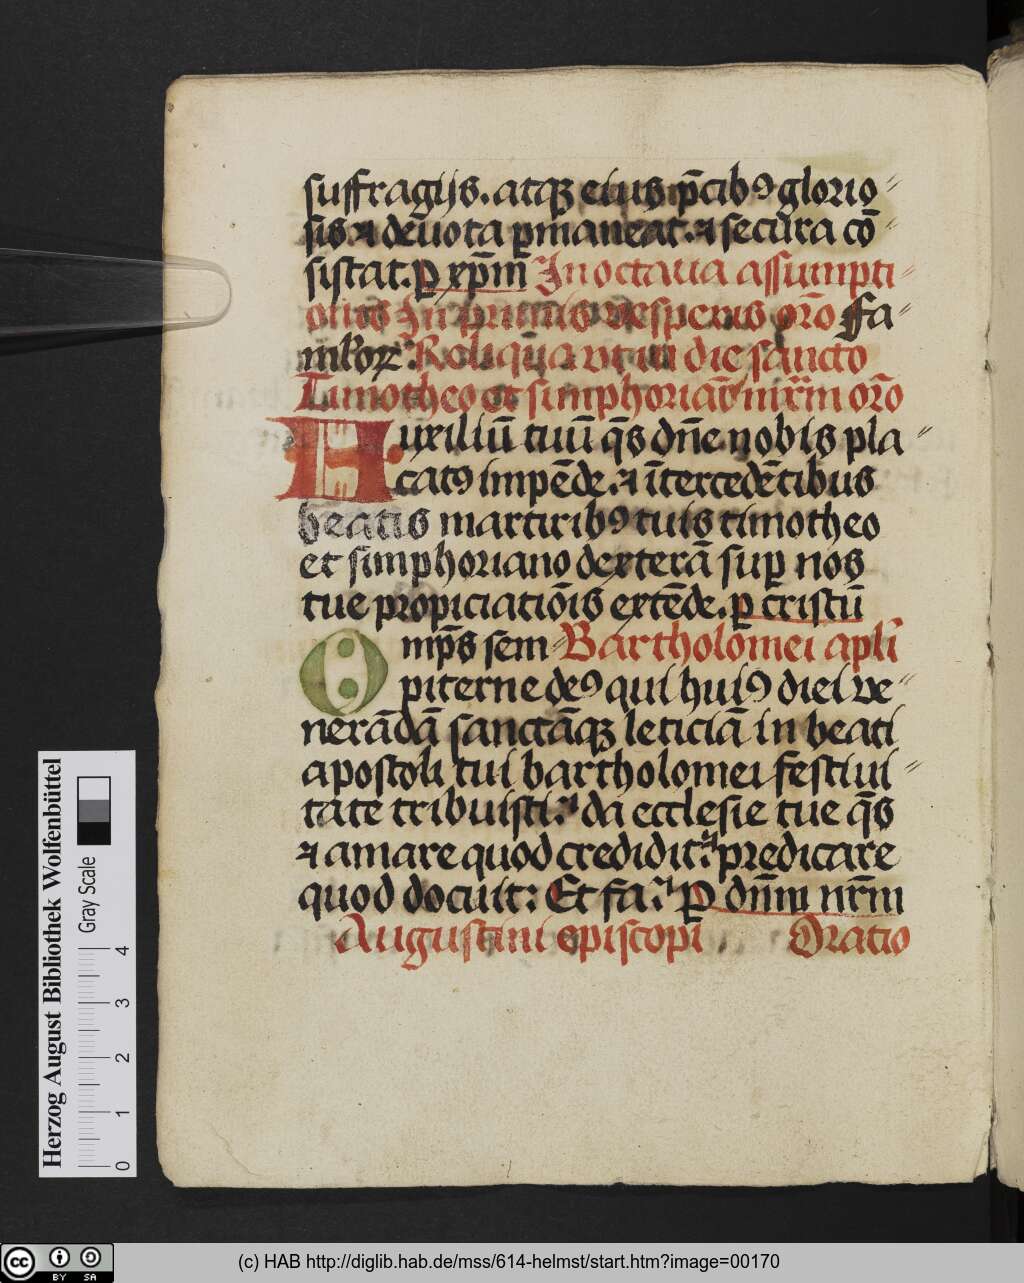 suffragijs. atqꝫ eius p̄cibꝰ glorio
sis ⁊ deuota ꝑmaneat. ⁊ secura cō
sistat. ꝑ xp̄m In octaua assumpti
onis In primis vesperis or̄o Fa
ml'oꝝ Reliqua vt in die sancto
Timotheo et simphorian̄ mr̄m or̄o
Auxiliū tuū q̄s dn̄e nobis pla
catꝰ impēde. ⁊ īntercedētibus
beatis martiribꝰ tuis timotheo
et simphoriano dexterā suꝑ nos
tue propiciatiōis extēde. ꝑ cristū
Omp̄s sem Bartholomei apl̄i
piterne deꝰ qui huiꝰ diei ve
nerādā sanctāqꝫ leticiā in beati
apostoli tui bartholomei festiui
tate tribuisti. da ecclesie tue q̄s
⁊ amare quod credidit. ⁊ predicare
quod docuit: Et fa. ꝑ dn̄m nr̄m
Augustini episcopi Oratio
Herzog August Bibliothek Wolfenbüttel
Gray Scale
0 1 2 3 4
cc BY SA
(c) HAB http://diglib.hab.de/mss/614-helmst/start.htm?image=00170